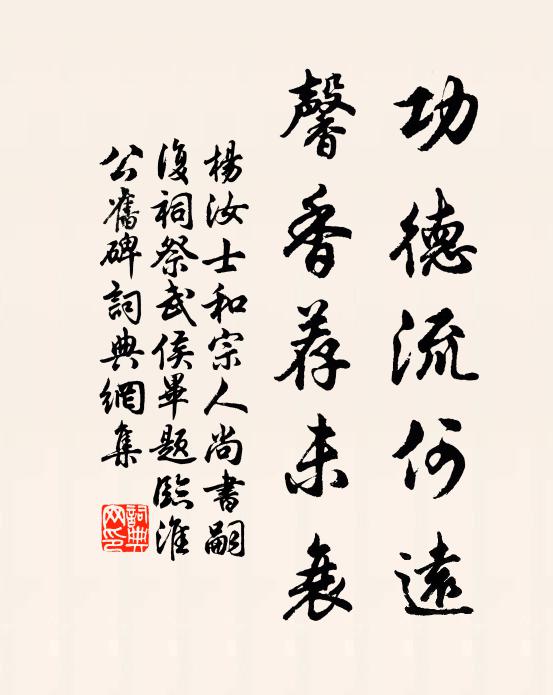 功德流何遠
馨香荐未衰
楊汝士和宗人尚書嗣
復祠祭武侯畢題臨淮
公舊碑詞典網集
詞典網印